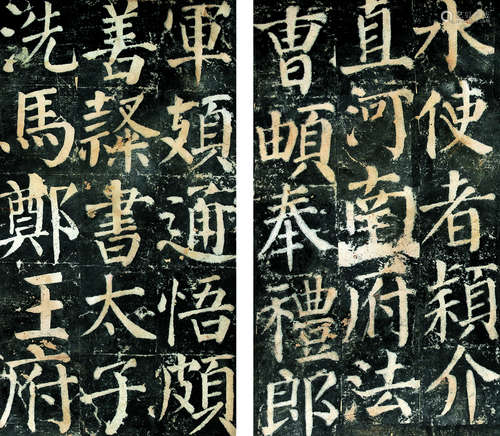 水使者穎介
直河南府法
曹頔奉禮郎
軍頗通悟頗
善隸書太子
洗馬鄭王府